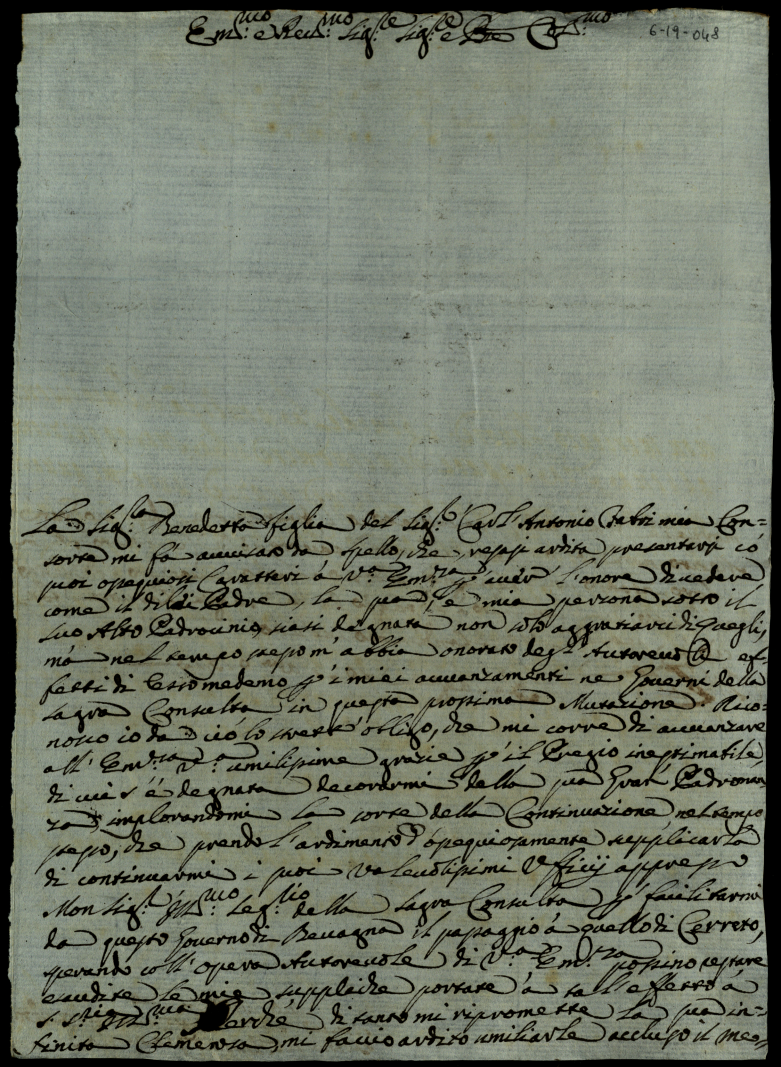 Em.mo e Rev.mo Sig.re Sig.re e Pne Col.mo
6-19-048
La Sig.ra Benedetta figlia del Sig.re Cav.r Antonio mia Con=
sorte mi fà avvisato da Spello, che resasi ardita presentarsi có
suoi ossequiosi Caratteri à V.a Em.za p. aver l'onore di vedere
come il di lei Padre, la sua, e mia persona sotto il
suo Alto Padrocinio, siasi degnata non solo aggraziarci di quegli,
mà nel tempo stesso m'abbia onorato degl'Autorevoli ef=
fetti di Esso medemo p. i miei avvanzamenti ne Governi della
Sagra Consulta in questa prossima Mutazione. Rico=
nosco io da ciò lo strett'obligo, che mi corre di avvanzare
all'Em.za V.a umilissime grazie p. il Pregio inestimabile,
di cui s'è degnata decorarmi della sua Gran Padronan
za, implorandomi la sorte della Continuazione, nel tempo
stesso, che prendo l'ardimento d'ossequiosamente supplicarla
di continuarmi i suoi valevolissimi Ufficij appresso
Monsig.r Ill.mo Seg.rio della Sagra Consulta p. facilitarmi
da questo Governo di Bevagna il passaggio à quello di Cerreto,
sperando coll'opera Autorevole di V.a Em.za possino restare
esaudite le mie suppliche portate à tal'effetto à
S. S.ria Ill.ma Perche di tanto mi ripromette la sua in=
finita Clemenza, mi faccio ardito umiliarle accluso il me=